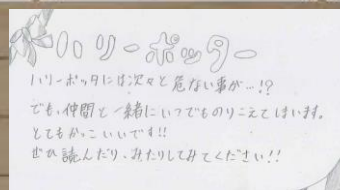 ハリーポッター
ハリーポッタには次々と危ない事が…!?
でも、仲間と一緒にいつでものりこえてはいます。
とてもかっこいいです!!
ぜひ読んだり、みたりしてみてください!!